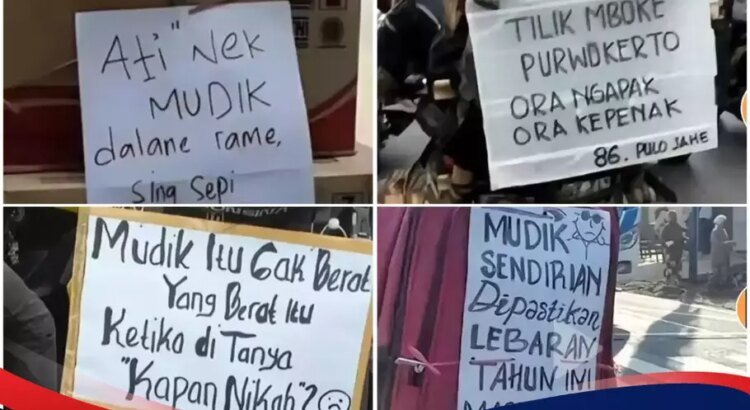 Ati" Nek
MUDIK
dalane rame,
sing sepi
TILIK MBOKE
PURWOKERTO
ORA NGAPAK
ORA KEPENAK
86. PULO JAHE
Mudik Itu Gak Berat
Yang Berat Itu
Ketika di Tanya
"Kapan Nikah"?
MUDIK
SENDIRIAN
Dipastikan
LEBARAN
TAHUN INI